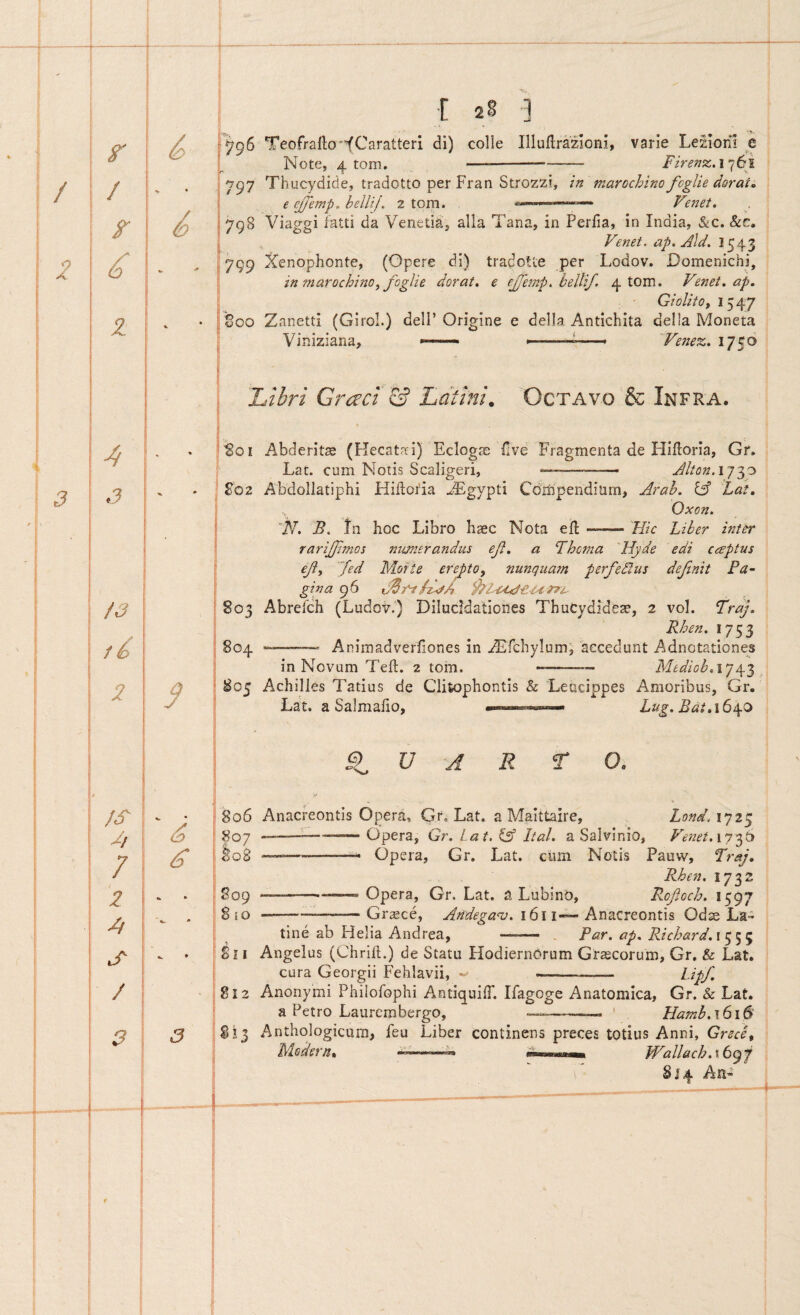 [ 28 ]
8 6 796 Teofrasto (Caratteri di) colle Illuſtrazioni, varie Lezioni e
Note, 4 tom. ——— Firenz. 1761
1 1 - . 797 Thucydide, tradotto per Fran Strozzi, in marochino foglie dorat.
e eſſemp. belliſ. 2 tom. ——— Venet.
8 6 798 Viaggi fatti da Venetia, alla Tana, in Perſia, in India, &c. &c.
Venet. ap. Ald. 1543
2 6 - . 799 Xenophonte, (Opere di) tradotte per Lodov. Domenichi,
in marochino, foglie dorat. e eſſemp. belliſ. 4 tom. Venet. ap.
Giolito, 1547
2 . . 800 Zanetti (Girol.) dell' Origine e della Antichita della Moneta
Viniziana, —— ——— Venez. 1750
Libri Græci & Latini. Octavo & Infra.
4 . . 801 Abderitæ (Hecatæi) Eclogæ ſive Fragmenta de Hiſtoria, Gr.
Lat. cum Notis Scaligeri, ——— Alton. 1730
3 3 . . 802 Abdollatiphi Hiſtoria Ægypti Compendium, Arab. & Lat.
Oxon.
N. B. In hoc Libro hæc Nota eſt —— Hic Liber inter
rariſſimos numerandus eſt. a Thoma Hyde edi cæptus
eſt, ſed Morte erepto, nunquam perfectus definit Pa-
gina 96 British Museum
13 803 Abreſch (Ludov.) Dilucidationes Thucydideæ, 2 vol. Traj.
Rhen. 1753
16 804 ——— Animadverſiones in Æſchylum, accedunt Adnotationes
in Novum Teſt. 2 tom. ——— Mediob. 1743
2 9 805 Achilles Tatius de Clitophontis & Leucippes Amoribus, Gr.
Lat. a Salmaſio, ——— Lug. Bat. 1640
QUARTO.
15 - . 806 Anacreontis Opera, Gr. Lat. a Maittaire, Lond. 1725
4 6 807 ——— Opera, Gr. Lat. & Ital. a Salvinio, Venet. 1736
7 6 808 ——— Opera, Gr. Lat. cum Notis Pauw, Traj.
Rhen. 1732
2 - . 809 ——— Opera, Gr. Lat. a Lubino, Roſtoch. 1597
4 - . 810 ——— Græcé, Andegav. 1611—— Anacreontis Odæ La-
tinè ab Helia Andrea, —— Par. ap. Richard. 1555
5 - . 811 Angelus (Chriſt.) de Statu Hodiernorum Græcorum, Gr. & Lat.
cura Georgii Fehlavii, - ——— Lipſ.
1 812 Anonymi Philoſophi Antiquiſſ. Iſagoge Anatomica, Gr. & Lat.
a Petro Laurembergo, ——— Hamb. 1616
3 3 813 Anthologicum, ſeu Liber continens preces totius Anni, Græcé,
Modern. ——— ——— Wallach. 1697
814 An-